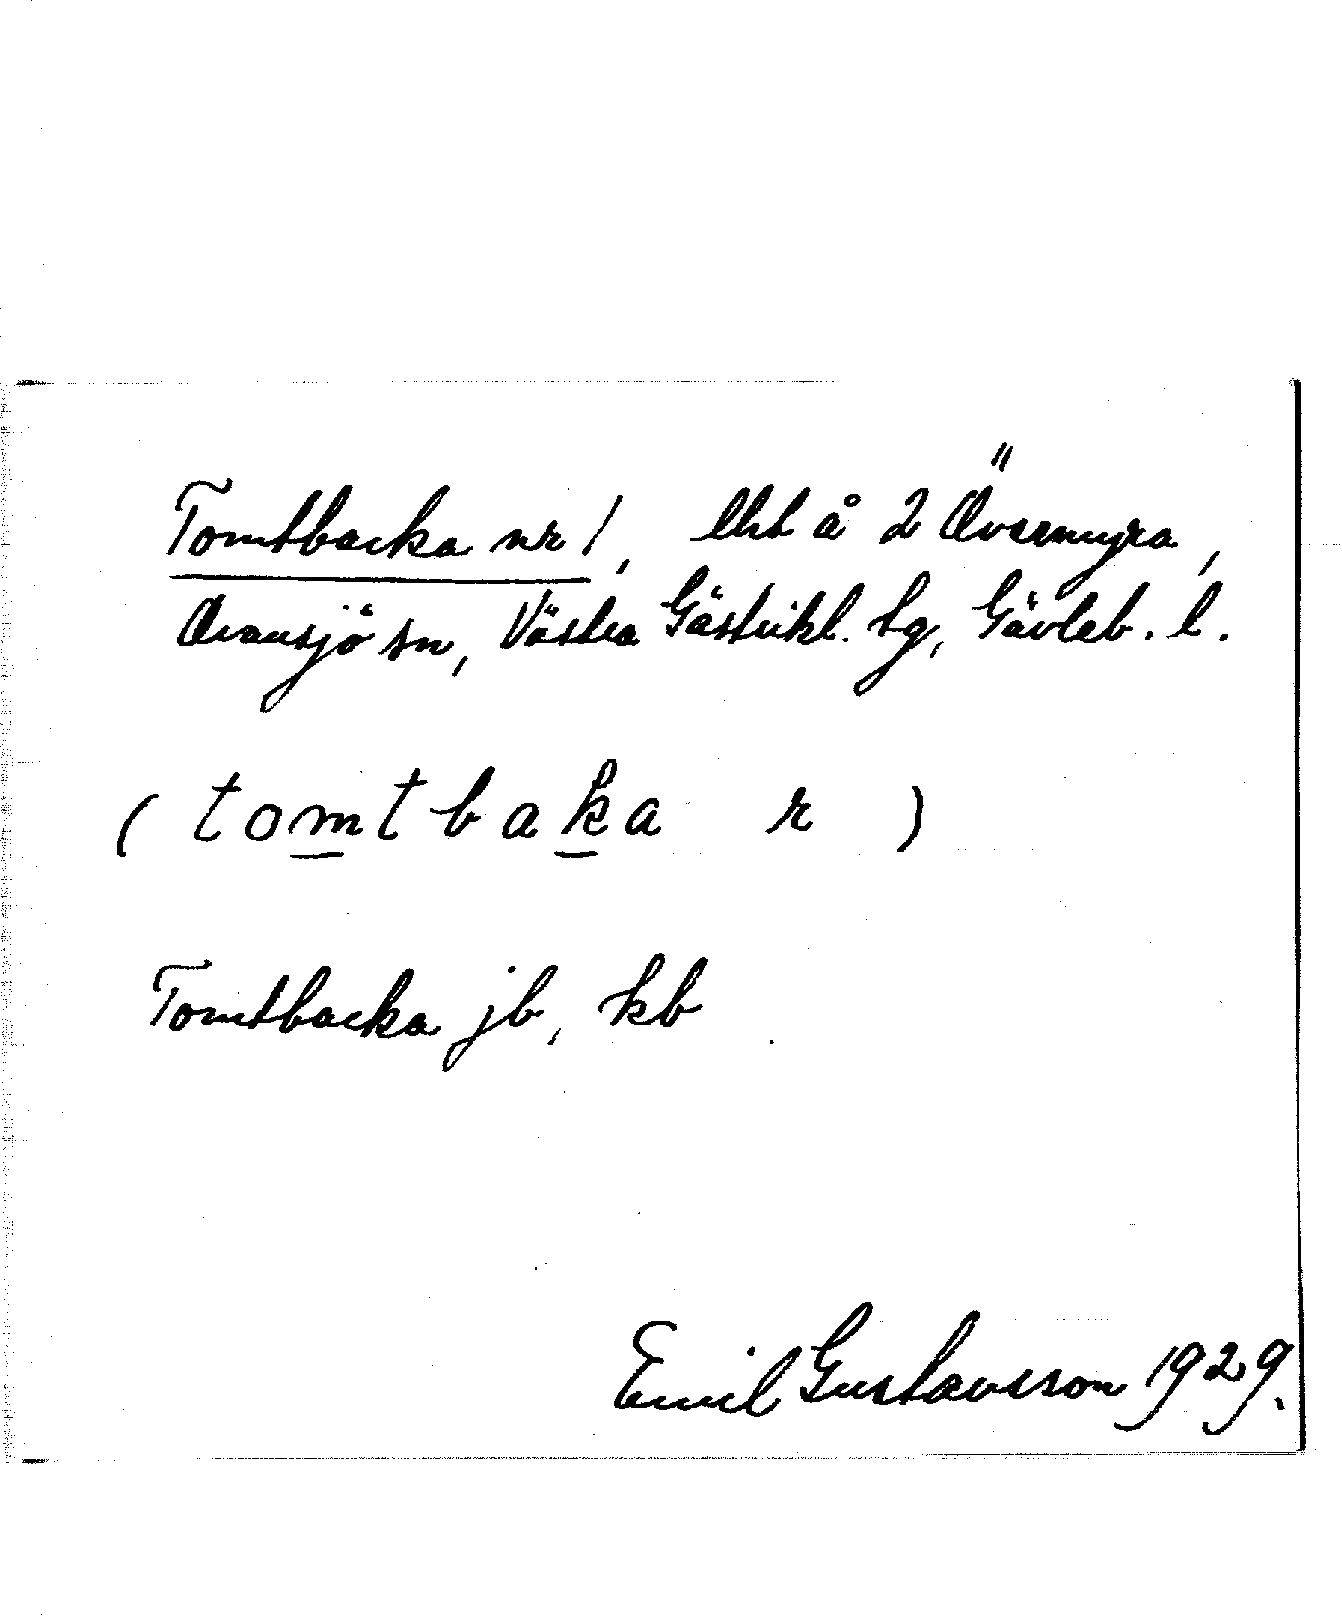 Tomtbacka nr 1, lht å 2 Övermyra,
Ovansjö sn, Västra Gästrikl. tg, Gävleb. l.
( tom̲tbak̲a r )
Tomtbacka jb, kb
Emil Gustavsson 1929.